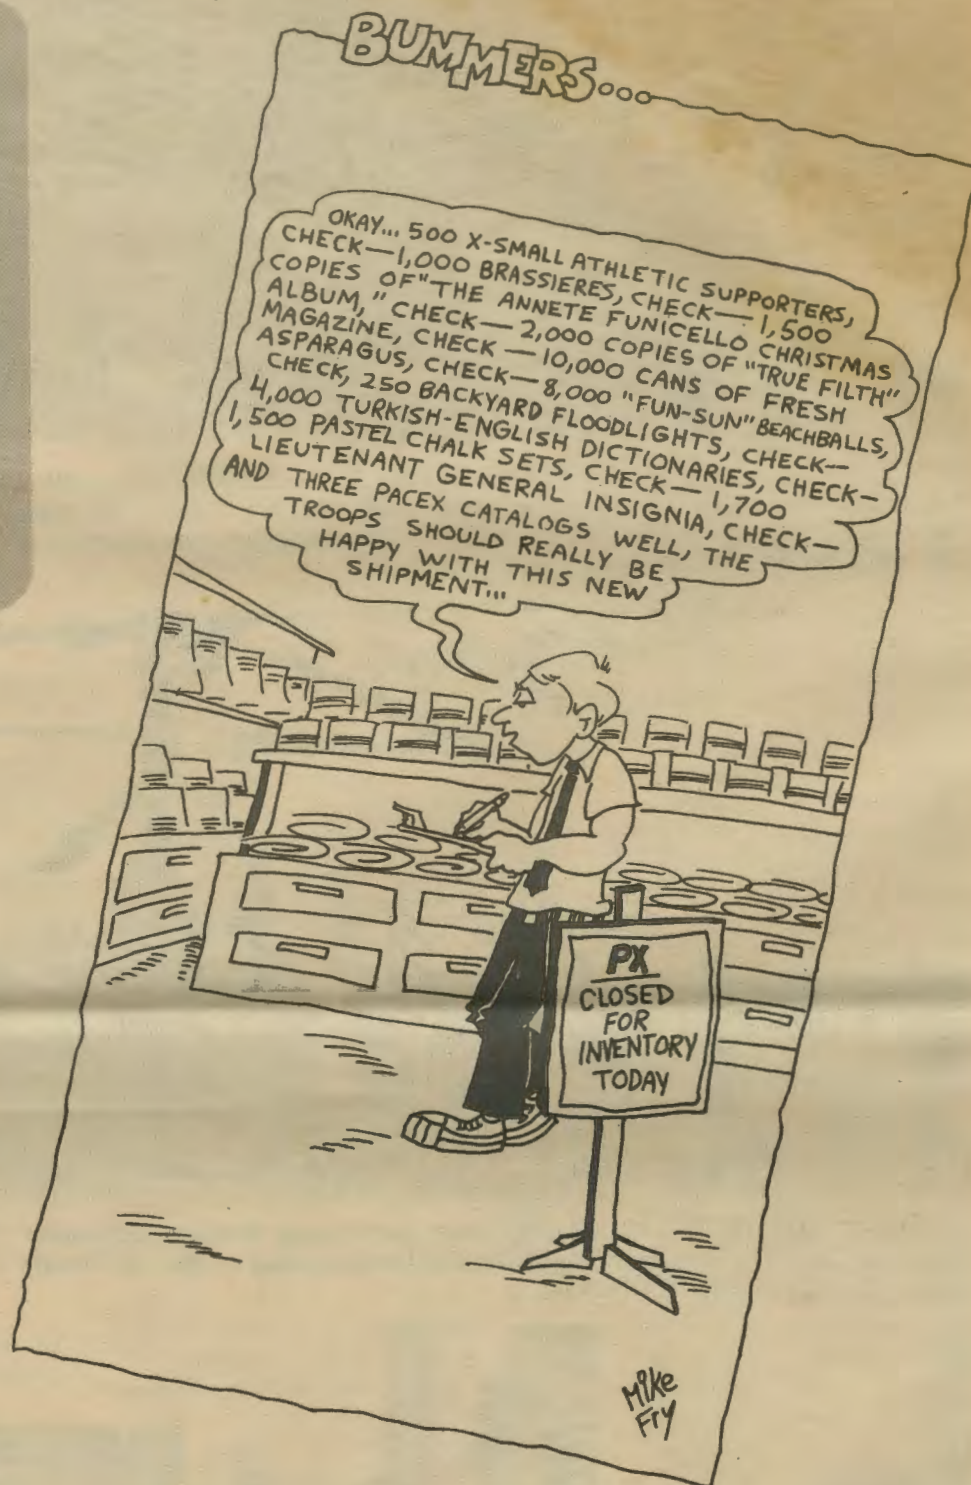 BUMMERS...
OKAY... 500 X-SMALL ATHLETIC SUPPORTERS,
CHECK—1,000 BRASSIERES, CHECK—1,500
COPIES OF "THE ANNETE FUNICELLO CHRISTMAS
ALBUM," CHECK—2,000 COPIES OF "TRUE FILTH"
MAGAZINE, CHECK—10,000 CANS OF FRESH
ASPARAGUS, CHECK—8,000 "FUN-SUN" BEACHBALLS,
CHECK, 250 BACKYARD FLOODLIGHTS, CHECK—
4,000 TURKISH-ENGLISH DICTIONARIES, CHECK—
1,500 PASTEL CHALK SETS, CHECK—1,700
LIEUTENANT GENERAL INSIGNIA, CHECK—
AND THREE PACEX CATALOGS WELL, THE
TROOPS SHOULD REALLY BE
HAPPY WITH THIS NEW
SHIPMENT...
PX
CLOSED
FOR
INVENTORY
TODAY
MIKE
FRY